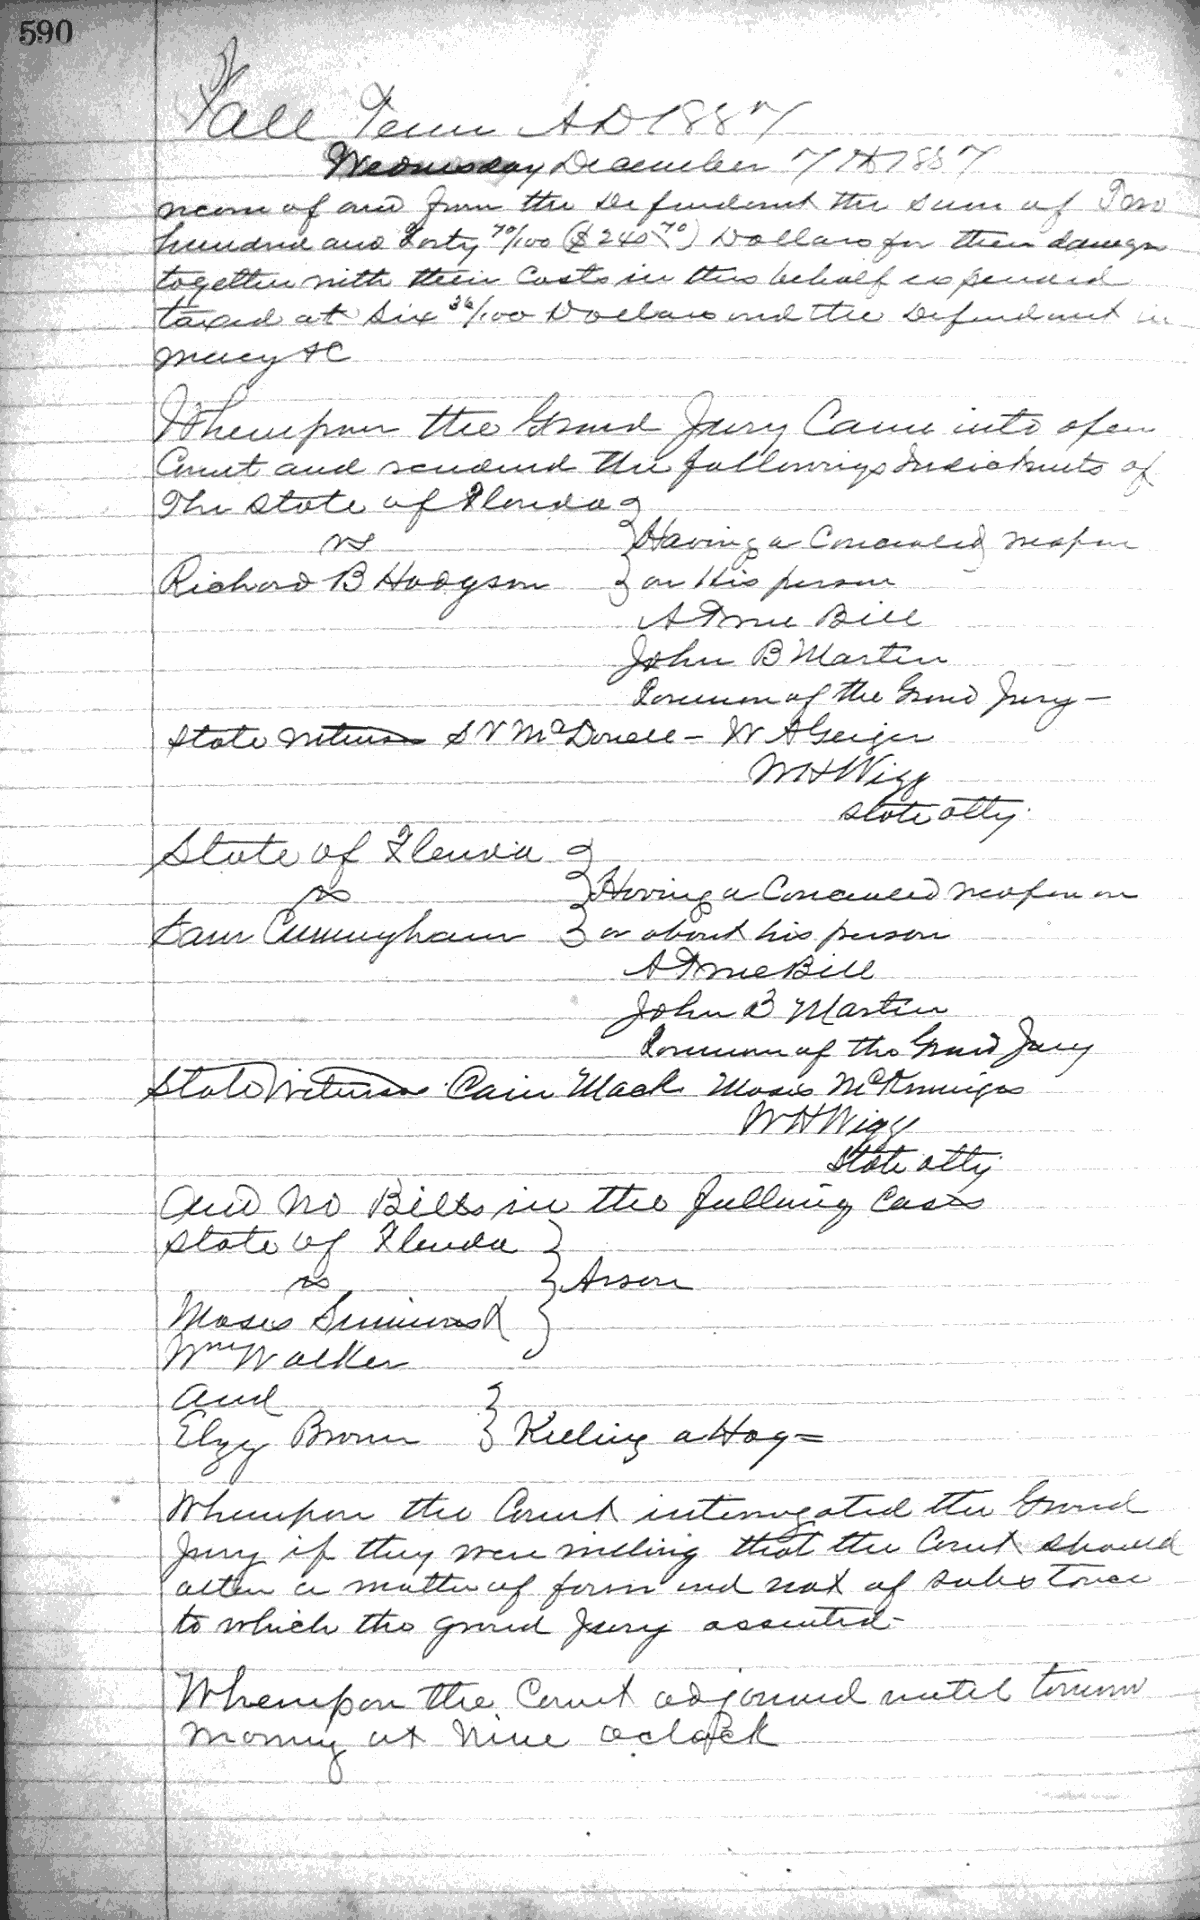 590
Fall Term AD 1887
Wednesday December 7th 1887
recover of and from the Defendant the sum of Two
hundred and Forty 70/100 ($240 70) Dollars for their damages
together with their Costs in this behalf expended
taxed at Six 36/100 Dollars and the Defendant in
mercy &C
Whereupon the Grand Jury Came into open
Court and rendered the following Indictments of
The State of Florida
vs
Having a Concealed weapon
Richard B Hodgson
on his person
A True Bill
John B Martin
Foreman of the Grand Jury —
State witness S V McDonell — W A Geiger
W H Wigg
State atty.
State of Florida
vs
Having a Concealed weapon on
Sam Cunningham
or about his person
A True Bill
John B Martin
Foreman of the Grand Jury
State Witness Cain Mack Moses
W H Wigg
State atty
And No Bills in the following Cases
State of Florida
vs
Arson
Moses Simmons &
Wm Walker
and
Elzy Brown
Killing a Hog =
Whereupon the Court interrogated the Grand
Jury if they were willing that the Court should
alter a matter of form and not of substance
to which the grand Jury assented —
Whereupon the Court adjourned until tomorrow
morning at Nine oclock